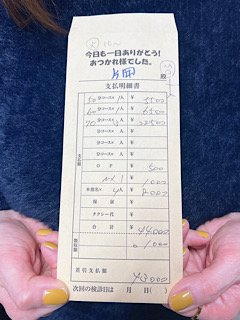 今日も一日ありがとう！
おつかれ様でした。
殿
支払明細書
50 分コース× 1 人 ¥ 5500
60 分コース× 1 人 ¥ 6500
70 分コース× 3 人 ¥ 22500
分コース× 人 ¥
分コース× 人 ¥
分コース× 人 ¥
支払額
O P ¥ 500
¥ 1000
本指名× 4 人 ¥ 8000
保証 ¥
タクシー代 ¥
合計 ¥ 44000
控除額
1000
差引支払額
¥ 43000
次回の検診日は 月 日（ ）